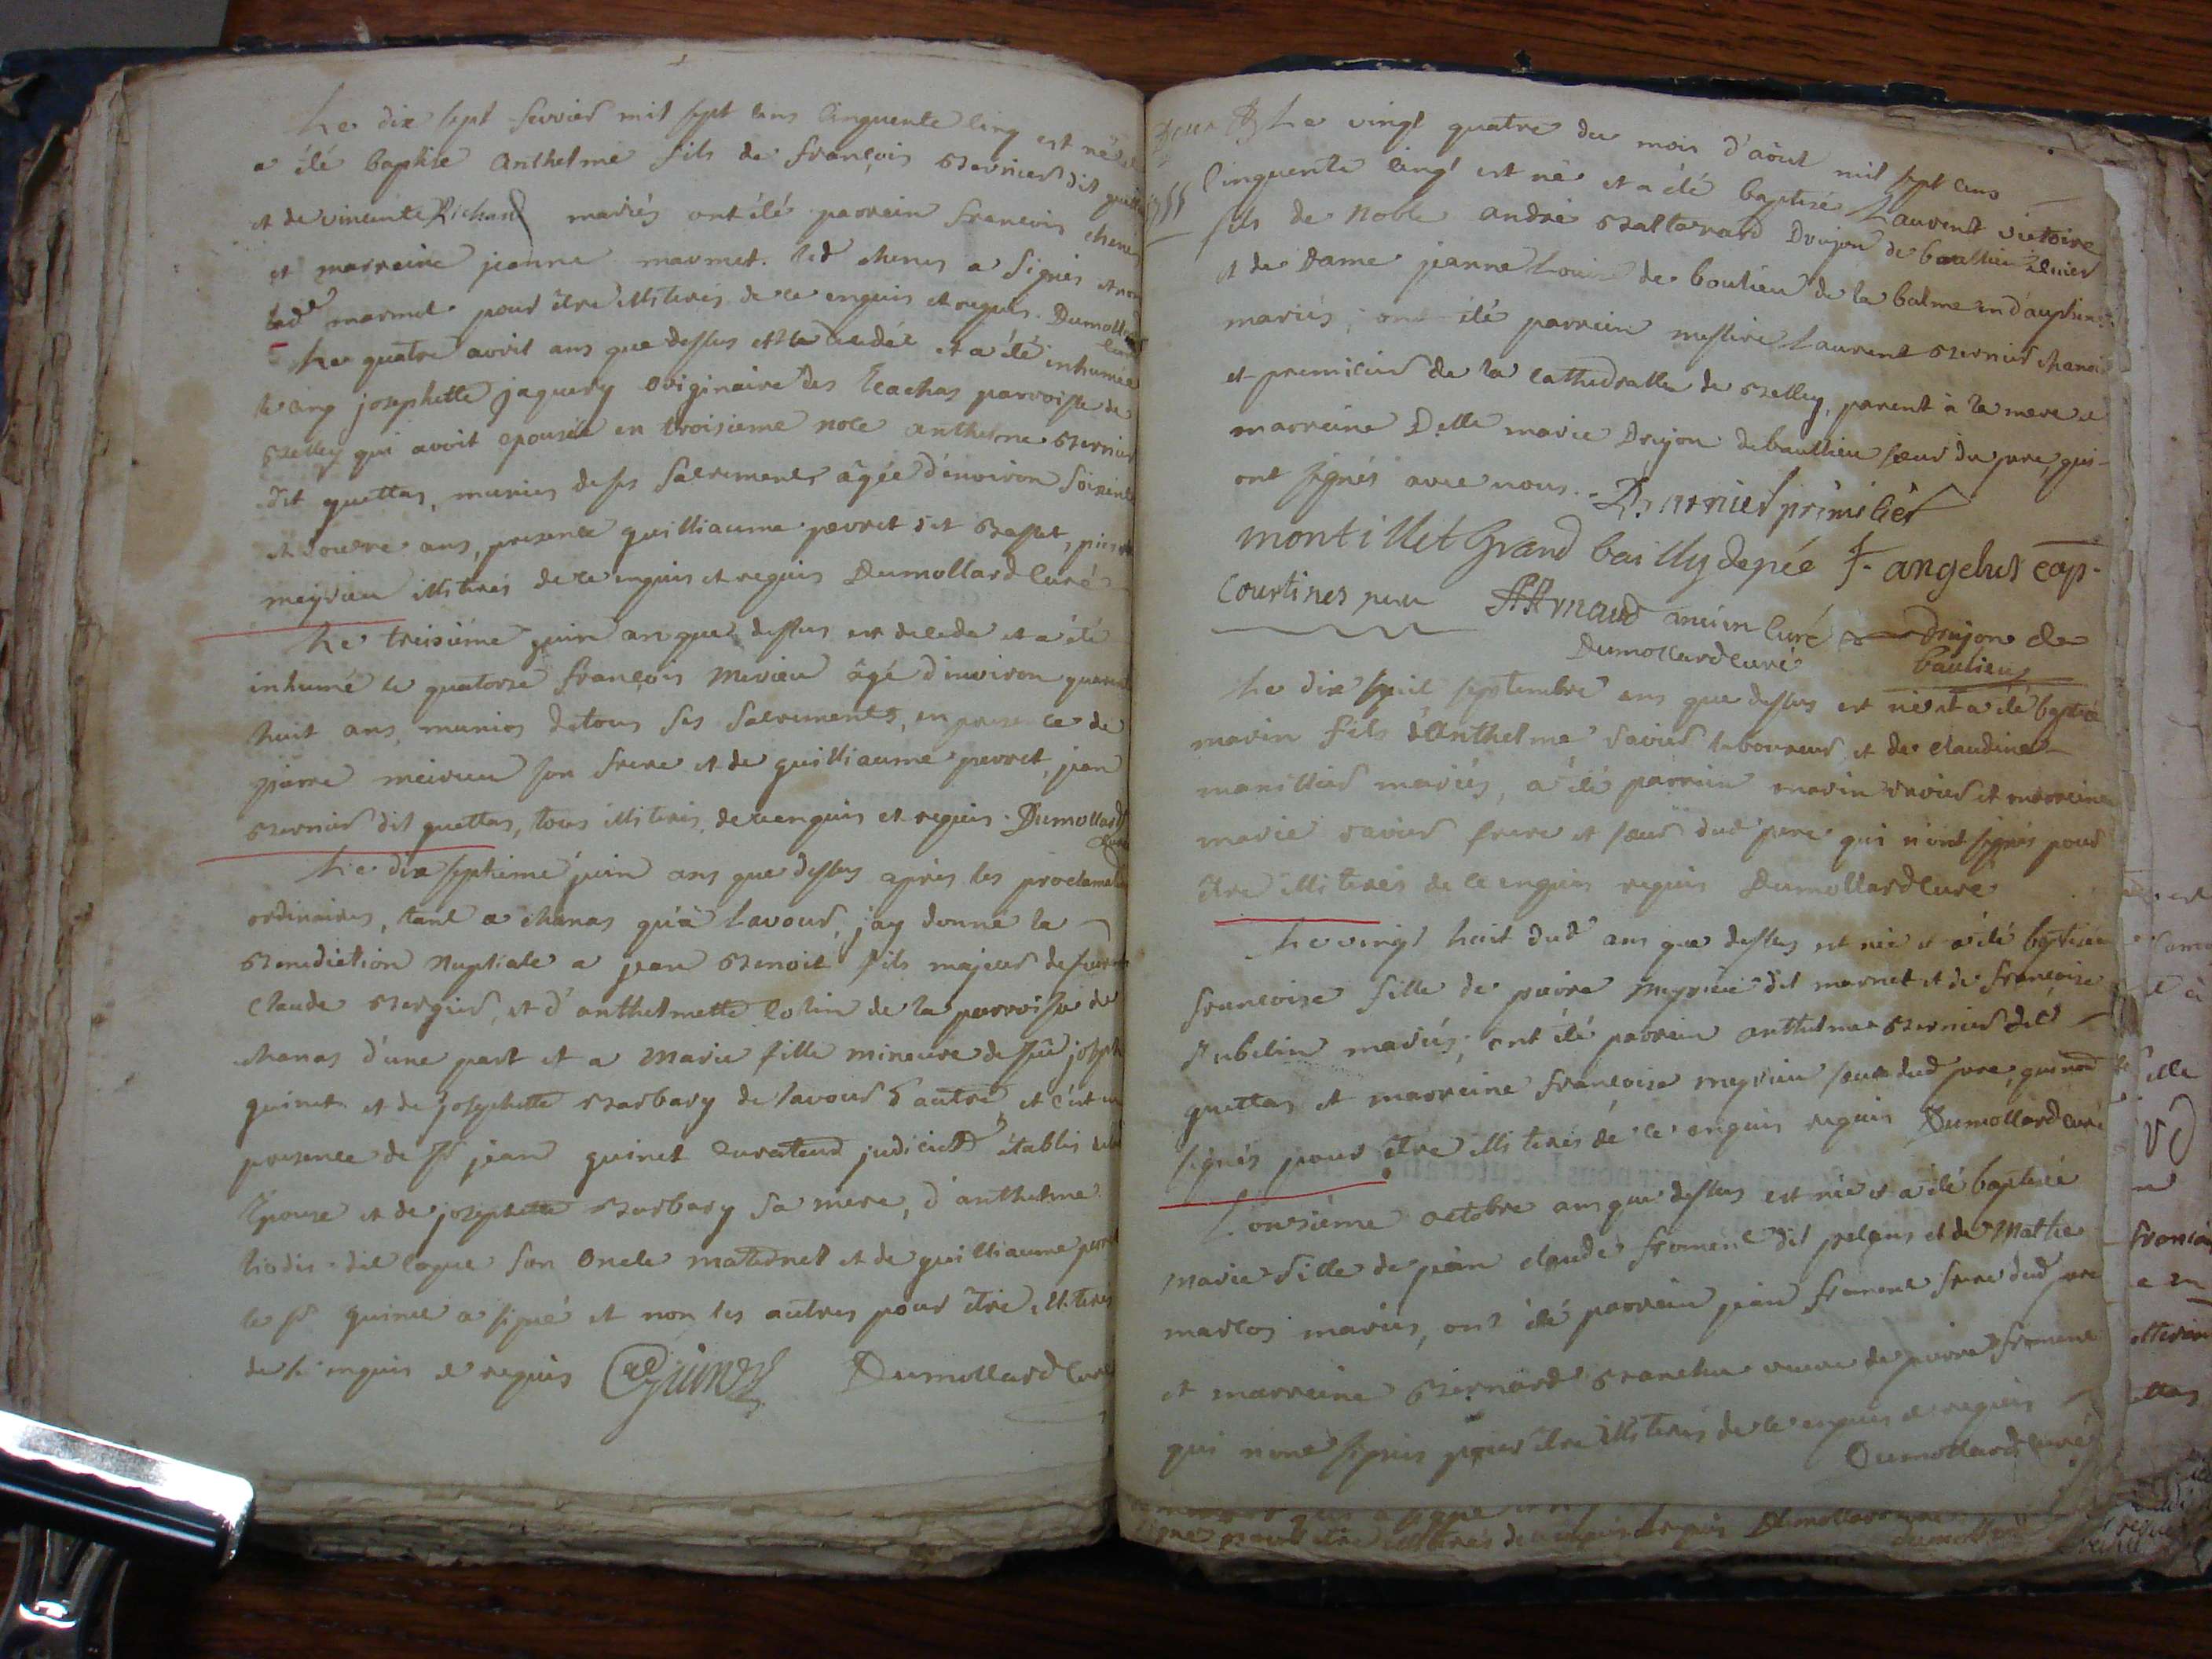 Le dix sept fevrier mil sept cens cinquente cinq est né et
a été baptisé Anthelme fils de françois Bernier dit guettas
et de vincente Richard mariés ont été parrein francois chenes
et marreine jeanne marmet. led chenes a signés et non
lad marmet pour être illiterés de ce enquis et requis. Dumollard
curé
Le quatre avril ans que dessus est decedée et a été inhumée
le cinq josephette jaquery originaire des Ecachas parroisse de
Belley qui avoit epousée en troisieme noce anthelme Bernier
dit guettas, munies de ses Sacrements âgée d'environ Soixente
et douze ans, presence guilliaume pevret dit Basset, pierre
meyrieu illiterés de ce enquis et requis Dumollard Curé
Le treisiéme juin an que dessus est decede et a été
inhumé le quatorse françois Merieu âgé d'environ quarente
huit ans, munies de tous ses Sacrements, en presence de
pierre meirieu son frere et de guilliaume pevret, jean
Bernier dit guettas, tous illiterés, de ce enquis et requis. Dumollard
Curé
Le dix septiéme juin ans que dessus après les proclamations
ordinaires, tant a chanas qu'a Lavour, j'ay donné la
Benediction Nuptiale a jean Benoit fils majeur de
Claude Bergier, et d'anthelmette Colin de la parroisse de
chanas d'une part et a Marie fille mineure de feu joseph
guinet et de josephette Barbary de lavour d'autre, et c'est en
presence de Sr jean guinet Curateur judiciel établis
Epouse et de josephette Barbary sa mere, d'anthelme
dit son Oncle maternel et de guilliaume pevret
le Sr guinet a signé et non les autres pour être illiterés
de ce enquis et requis Guinet Dumollard Curé
Le vingt quatre du mois d'août mil sept cens
1755 Cinquente cinq est né et a été baptisé Laurent victoire
fils de Noble andré Baltazard Drujon de baullieu
et de Dame jeanne Louise de boulieu de la balme en dauphiné
mariés, ont été parrein messire Laurent Bernier chanoine
et premicier de la cathedralle de Belley, parent à la mere et
marreine Delle marie Drujon de baullieu sœur du pere, qui
ont signés avec nous. Bernier primicier
montillet Grand bailly depée f. angelus cap.
Courtines A Arnaud ancien Curé Drujon de
Dumollard curé baulieu
Le dix septembre ans que dessus est né et a été baptisé
marin fils d'Anthelme Savier laboureur et de claudine
marillier mariés, a été parrein marin Savier et marreine
marie Savier frere et sœur dud pere qui n'ont signés pour
être illiterés de ce enquis requis Dumollard Curé
Le vingt huit dud ans que dessus est née et a été baptisée
francoise fille de pierre Meyrieu dit marnet et de françoise
Aubelin mariés, ont été parrein anthelme Bernier dit
guettas et marreine françoise meyrieu sœur dud pere, qui n'ont
signés pour être illiterés de ce enquis requis Dumollard Curé
L'onsiéme octobre ans que dessus est née et a été baptisée
Marie fille de jean claude froment dit et de Mathie
marcos mariés, ont été parrein jean froment frere dud pere
et marreine Bernarde veuve de pierre froment
qui n'ont signés pour être illiterés de ce enquis et requis
Dumollard Curé